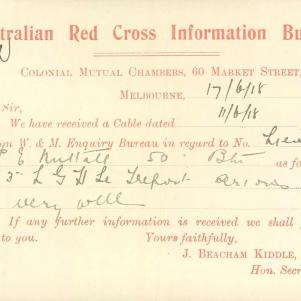 tralian Red Cross Information Bu
Colonial Mutual Chambers, 60 Market Street,
Melbourne, 17/6/18
Sir,
We have received a Cable dated 11/6/18
on W. & M. Enquiry Bureau in regard to No. Lieu
E Nuttall 50 Btn as fo
3 L G H Le Treport
very well
If any further information is received we shall
to you. Yours faithfully,
J. Beacham Kiddle,
Hon. Secre